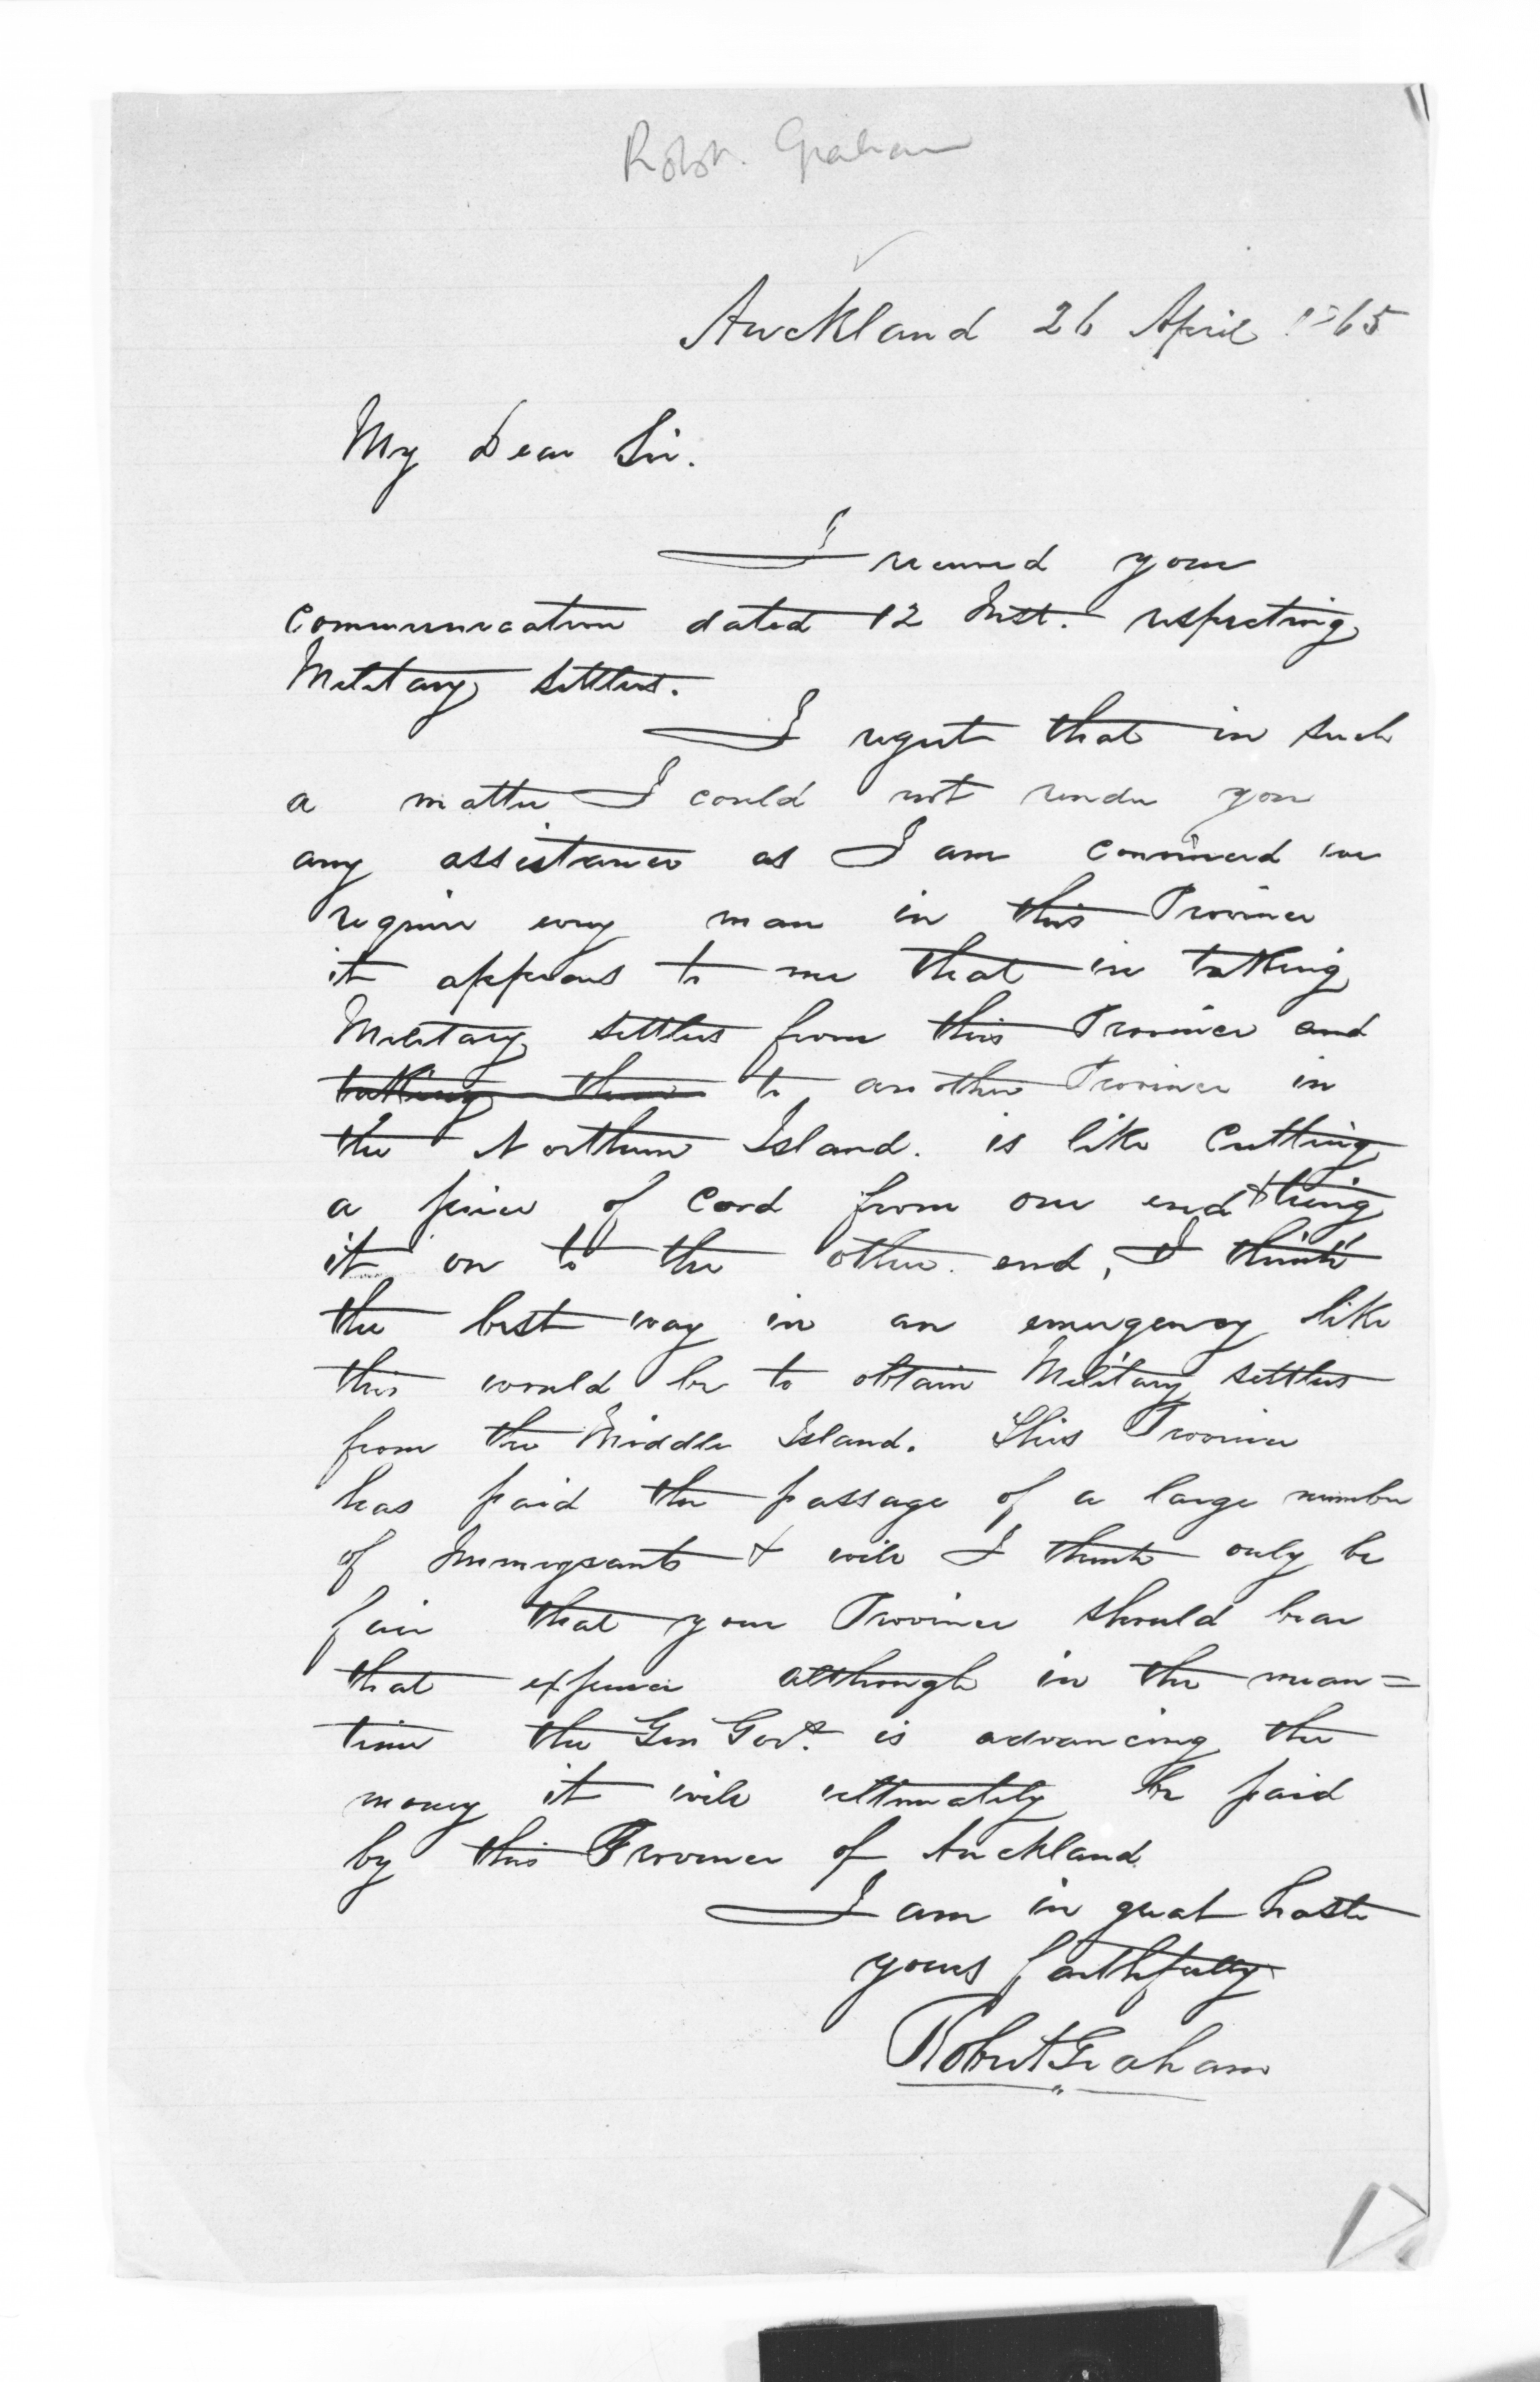 Robt. Graham
Auckland 26 April 1865
My Dear Sir.
I received your
communication dated 12 Inst. respecting
Military settlers.
I regret that in such
a matter I could not render you
any assistance as I am convinced we
require every man in this Province
it appears to me that in taking
Military settlers from this Province and
taking them to another Province in
the Northern Island. is like Cutting
a piece of Cord from one end & tieing
it on to the other end, I think
the best way in an emergency like
this would be to obtain Military settlers
from the Middle Island. This Province
has paid the passage of a large number
of Immigrants & will I think only be
fair that your Province should bear
that expence although in the mean=
time the Gen Govt. is advancing the
money it will ultimately be paid
by this Province of Auckland
I am in great haste
yours faithfully
Robert Graham